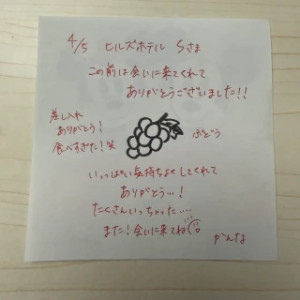 4/5 ヒルズホテル Sさま
この前は会いに来てくれて
ありがとうございました!!
差し入れ
ありがとう!
食べすぎた!笑
ぶどう
いっぱい気持ちよくしてくれて
ありがとう…!
たくさんいっちゃった....
また!会いに来てね
かんな